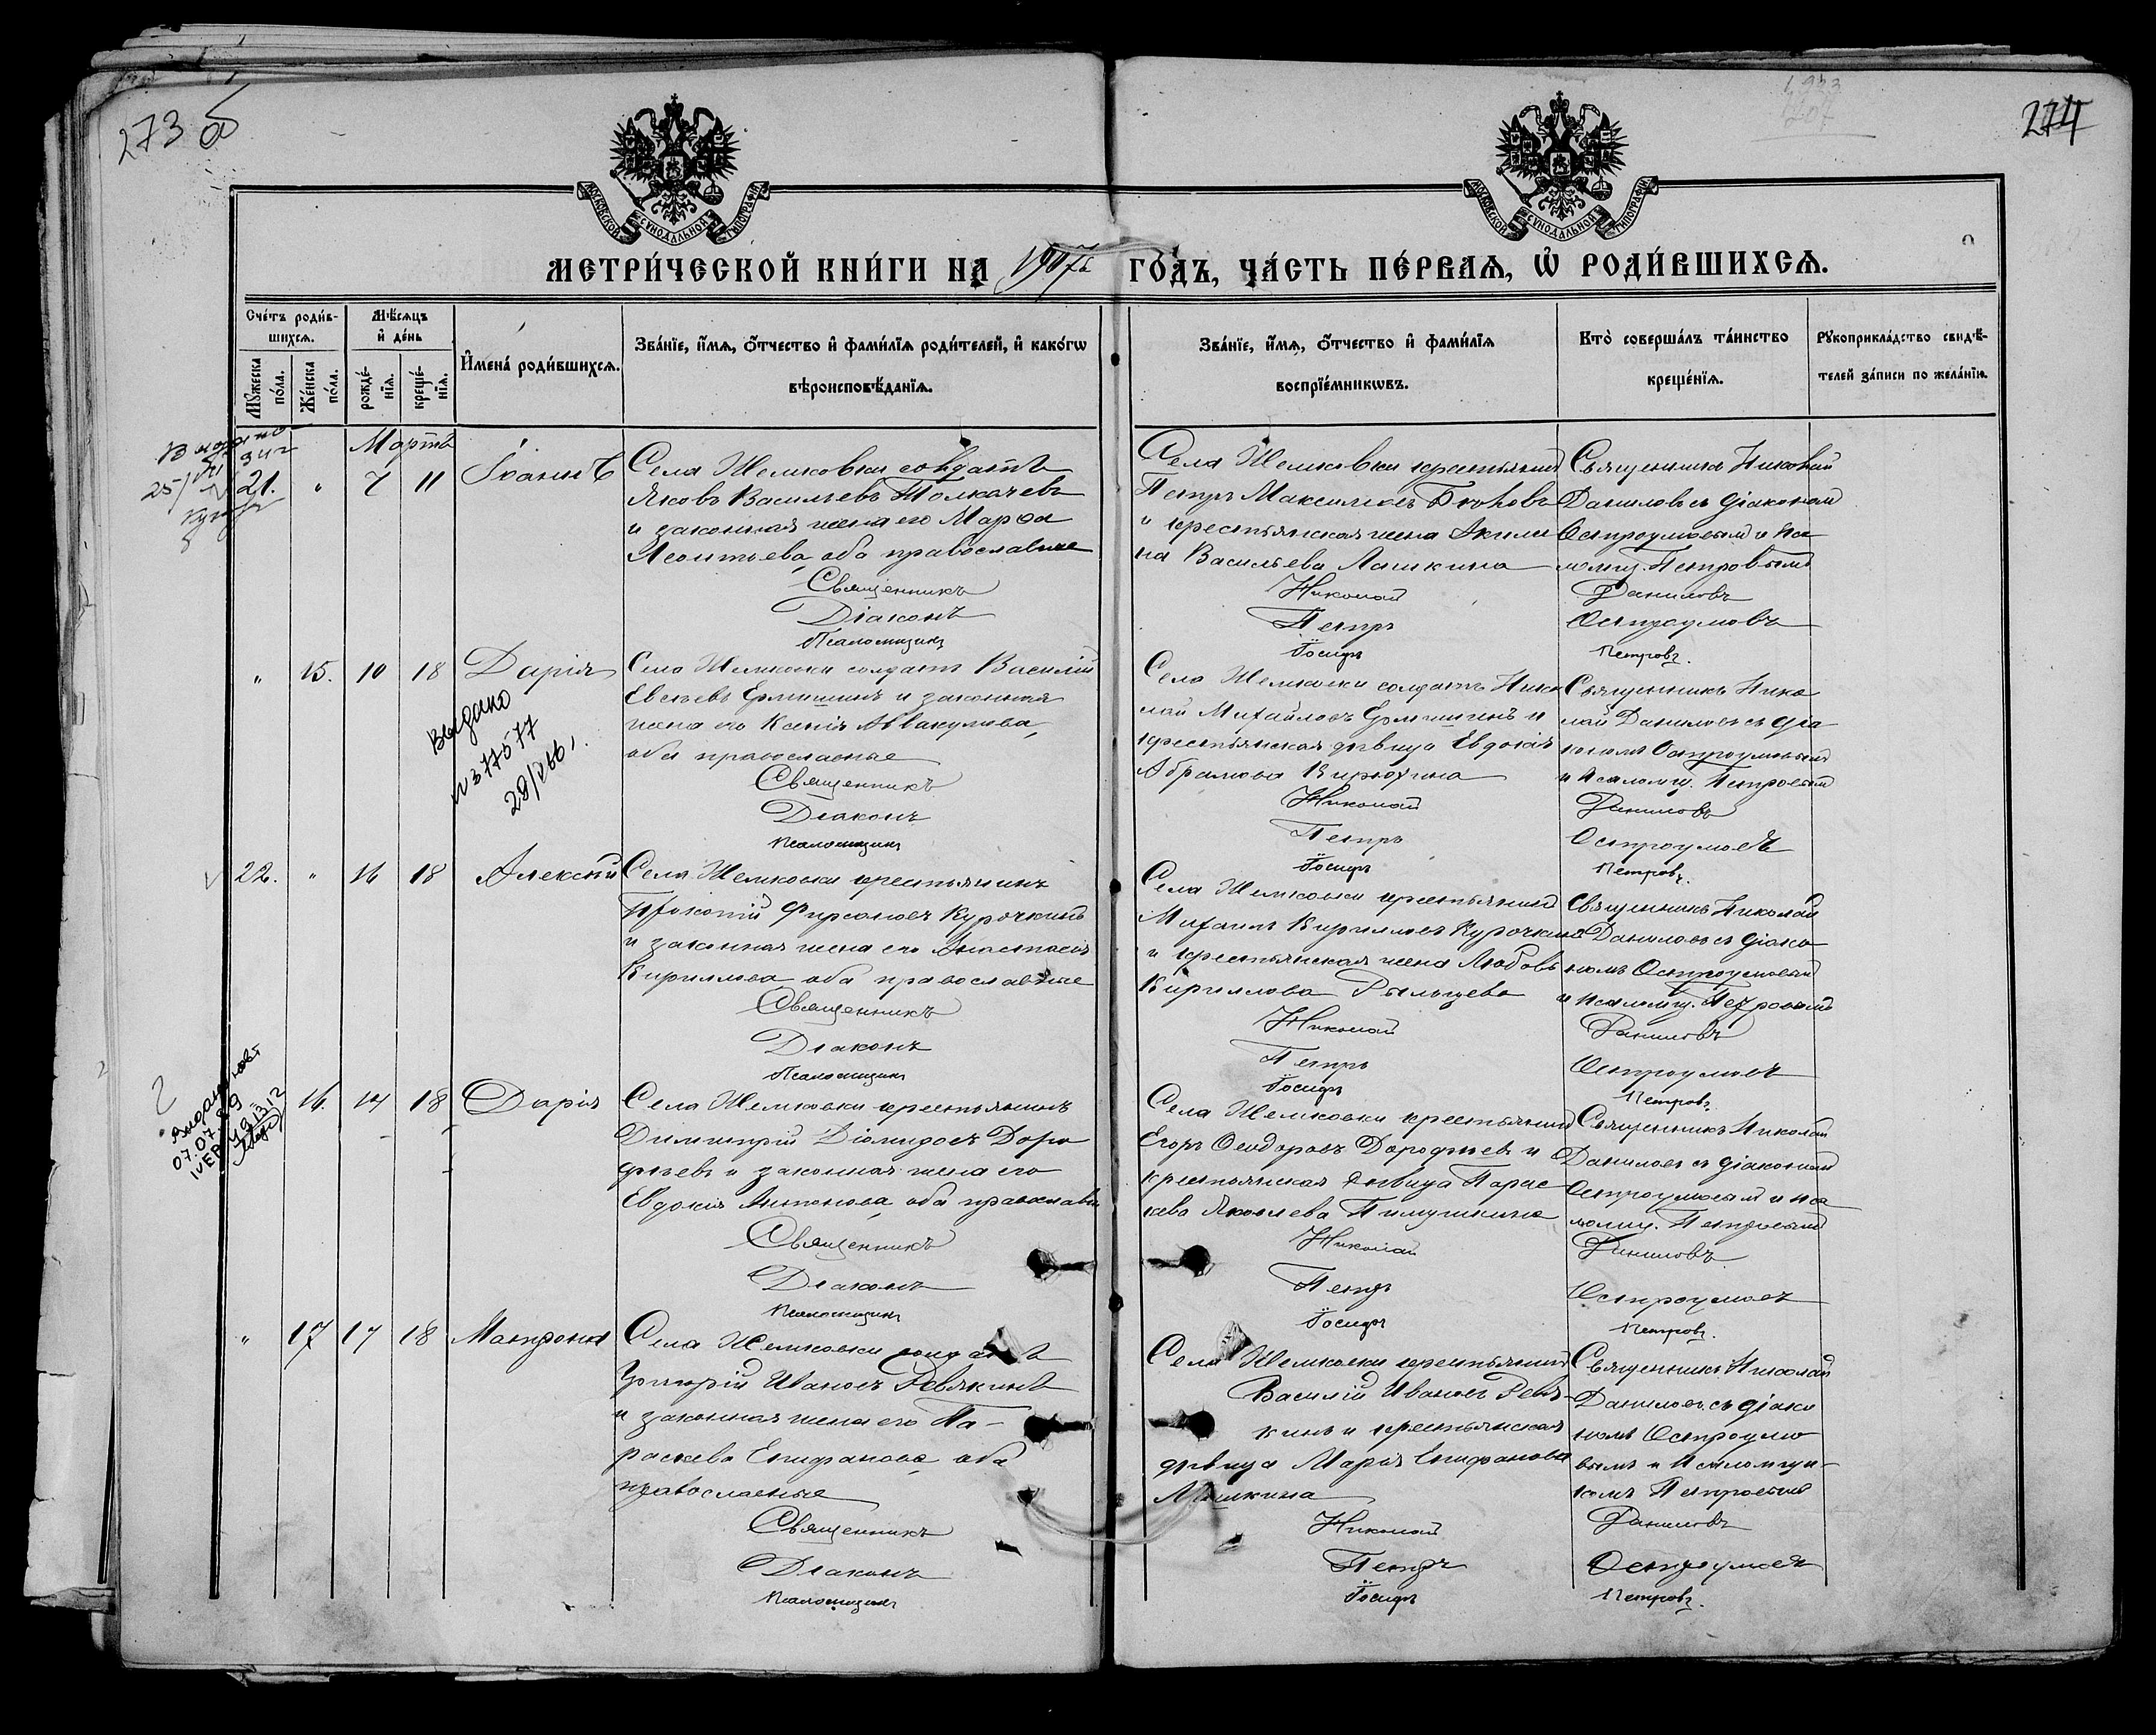 273 об
274
МОСКОВСКОЙ СѴНОДАЛЬНОЙ ТИПОГРАФІИ
МОСКОВСКОЙ СѴНОДАЛЬНОЙ ТИПОГРАФІИ
МЕТРИ́ЧЕСКОЙ КНИ́ГИ НА 1907й ГО́ДЪ, ЧА́СТЬ ПЕ́РВАѦ, Ѡ҆ РОДИ́ВШИХСѦ.
Сче́тъ роди́в-
шихсѧ.
Мꙋ́жеска по́ла.
Же́нска по́ла.
Мѣ́сѧцъ
и҆ де́нь
рожде́-
нїѧ.
креще́-
нїѧ.
И҆мена̀ роди́вшихсѧ.
Зва́нїе, и҆́мѧ, ѻ҆́тчество и҆ фами́лїѧ роди́телей, и҆ како́гѡ
вѣроисповѣ́данїѧ.
Зва́нїе, и҆́мѧ, ѻ҆́тчество и҆ фами́лїѧ
воспрїе́мникѡвъ.
Кто̀ соверша́лъ та́инство
креще́нїѧ.
Рꙋкоприкла́дство свидѣ́-
телей за́писи по жела́нїю.
Мартъ
21. " 7 11 Іоаннъ
Села Шемковки солдатъ
Яковъ Васильевъ Толкачевъ
и законная жена его Марѳа
Леонтьева, оба православные
Священникъ
Діаконъ
Псаломщикъ
Села Шемковки крестьянинъ
Петръ Максимовъ
и крестьянская жена Акили
на Васильева Лашкина
Николай
Петръ
Іосифъ
Священникъ Николай
Даниловъ съ діакономъ
Остроумовымъ и пса
ломщ. Петровымъ
Даниловъ
Остроумовъ
Петровъ.
" 15. 10 18 Дарія
Выдано
28/
Села Шемковки солдатъ Василій
Евсѣевъ Ермишинъ и законная
жена его Ксенія Аввакумова,
оба православные
Священникъ
Діаконъ
Псаломщикъ
Села Шемковки солдатъ Нико
лай Михайловъ Ермишинъ и
крестьянская дѣвица Евдокія
Абрамова Кирюхина
Николай
Петръ
Іосифъ
Священникъ Нико
лай Даниловъ съ діа
кономъ Остроумовымъ
и псаломщ. Петровымъ
Даниловъ
Остроумовъ
Петровъ.
22. " 16 18 Алексій
Села Шемковки крестьянинъ
Прокопій Фирсановъ Курочкинъ
и законная жена его Анастасія
Кириллова, оба православные
Священникъ
Діаконъ
Псаломщикъ
Села Шемковки крестьянинъ
Михаилъ Кирилловъ Курочкинъ
и крестьянская жена Любовь
Кириллова Рыльцева
Николай
Петръ
Іосифъ
Священникъ Николай
Даниловъ съ діако
номъ Остроумовымъ
и псаломщ. Петровымъ
Даниловъ
Остроумовъ
Петровъ.
16. 17 18 Дарія
07.07.89
Села Шемковки крестьянинъ
Димитрій Діомидовъ Доро
фѣевъ и законная жена его
Евдокія Антонова, оба православн
Священникъ
Діаконъ
Псаломщикъ
Села Шемковки крестьянинъ
Егоръ Ѳеодоровъ Дорофѣевъ и
крестьянская дѣвица Парас
кева Яковлева Пимушкина
Николай
Петръ
Іосифъ
Священникъ Николай
Даниловъ съ діакономъ
Остроумовымъ и пса
ломщ. Петровымъ
Даниловъ
Остроумовъ
Петровъ.
" 17 17 18 Матрона
Села Шемковки солдатъ
Григорій Ивановъ Ревякинъ
и законная жена его Па-
раскева Епифанова, оба
православные
Священникъ
Діаконъ
Псаломщикъ
Села Шемковки крестьянинъ
Василій Ивановъ Ревя-
кинъ и крестьянская
дѣвица Марія Епифанова
Николай
Петръ
Іосифъ
Священникъ Николай
Даниловъ съ діако
номъ Остроумо
вымъ и псаломщи-
комъ Петровымъ
Даниловъ
Остроумовъ
Петровъ.